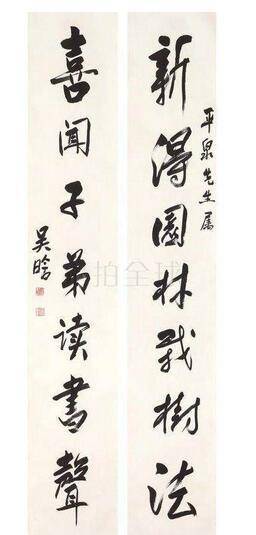 平泉先生属
新得園林栽樹法
喜闻子弟读書聲
吴晗
拍全球